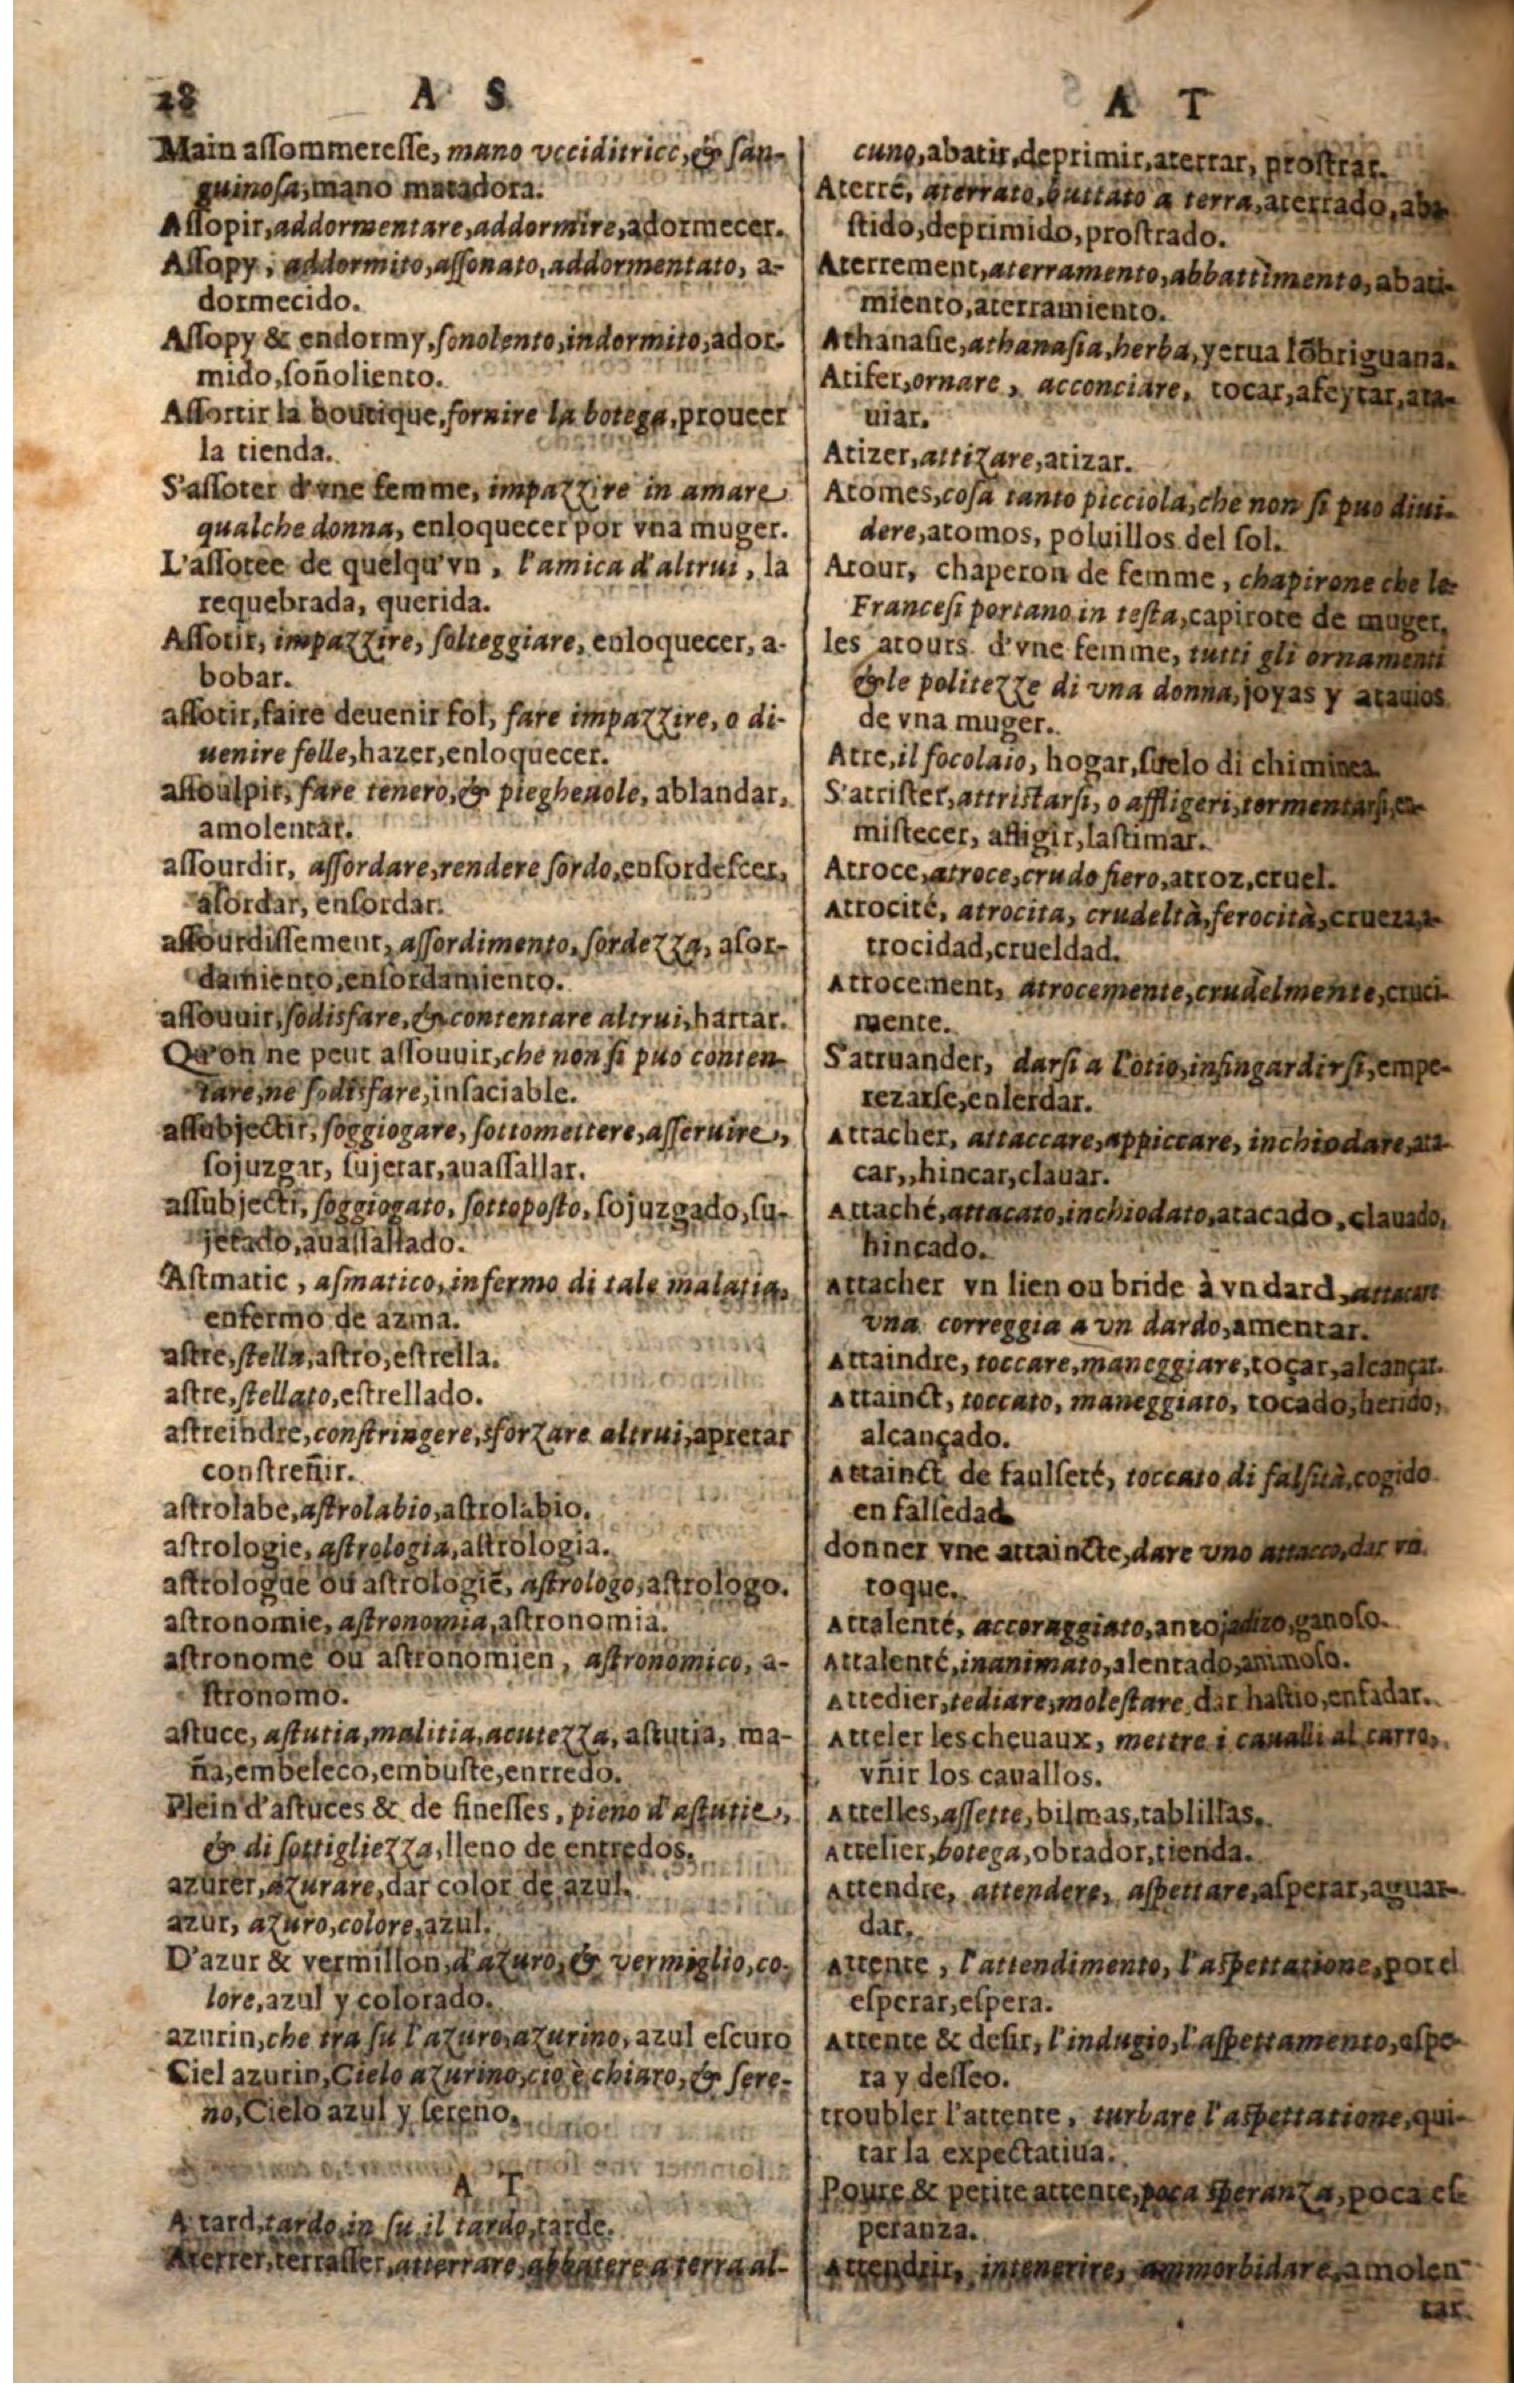 28 A S
Main assommeresse, mano vcciditrice, & san-
guinosa, mano matadora.
Assopir, addormentare, addormire, adormecer.
Assopy, addormito, assonato, addormentato, a-
dormecido.
Assopy & endormy, sonolento, indormito, ador-
mido, soñoliento.
Assortir la boutique, fornire la botega, proueer
la tienda.
S'assoter d'vne femme, impazzire in amare
qualche donna, enloquecer por vna muger.
L'assotee de quelqu'vn, l'amica d'altrui, la
requebrada, querida.
Assotir, impazzire, solteggiare, enloquecer, a-
bobar.
assotir, faire deuenir fol, fare impazzire, o di-
uenire folle, hazer, enloquecer.
assoulpir, fare tenero, & pieghenole, ablandar,
amolentar.
assourdir, assordare, rendere sordo, ensordescer,
asordar, ensordar.
assourdissement, assordimento, sordezza, asor-
damiento, ensordamiento.
assouuir, sodisfare, & contentare altrui, hartar.
Qu'on ne peut assouuir, che non si puo conten-
tare, ne sodisfare, insaciable.
assubjectir, soggiogare, sottomettere, asseruire,
sojuzgar, sujetar, auassallar.
assubjecti, soggiogato, sottoposto, sojuzgado, su-
jetado, auassallado.
Astmatic, asmatico, infermo di tale malatia,
enfermo de azma.
astre, stella, astro, estrella.
astre, stellato, estrellado.
astreindre, constringere, sforzare altrui, apretar
constreñir.
astrolabe, astrolabio, astrolabio.
astrologie, astrologia, astrologia.
astrologue ou astrologiē, astrologo, astrologo.
astronomie, astronomia, astronomia.
astronome ou astronomien, astronomico, a-
stronomo.
astuce, astutia, malitia, acutezza, astutia, ma-
ña, embeleco, embuste, enrredo.
Plein d'astuces & de finesses, pieno d'astutie,
& di sottigliezza, lleno de entredos.
azurer, azurare, dar color de azul.
azur, azuro, colore, azul.
D'azur & vermillon, d'azuro, & vermiglio, co-
lore, azul y colorado.
azurin, che tra su l'azuro, azurino, azul escuro
Ciel azurin, Cielo azurino, cio è chiaro, & sere-
no, Cielo azul y sereno.
A T
A tard, tardo, in su il tardo, tarde.
Aterrer, terrasser, atterrare, abbatere a terra al-
A T
cuno, abatir, deprimir, aterrar, prostrar.
Aterré, aterrato, buttato a terra, aterrado, aba-
stido, deprimido, prostrado.
Aterrement, aterramento, abbattimento, abati-
miento, aterramiento.
Athanasie, athanasia, herba, yerua lōbriguana.
Atifer, ornare, acconciare, tocar, afeytar, ata-
uiar.
Atizer, attizare, atizar.
Atomes, cosa tanto picciola, che non si puo diui-
dere, atomos, poluillos del sol.
Atour, chaperon de femme, chapirone che le
Francesi portano in testa, capirote de muger,
les atours d'vne femme, tutti gli ornamenti
& le politezze di vna donna, joyas y atauios
de vna muger.
Atre, il focolaio, hogar, suelo di chiminea
S'atrister, attristarsi, o affligeri, tormentarsi, en-
mistecer, afligir, lastimar.
Atroce, atroce, crudo fiero, atroz, cruel.
Atrocité, atrocita, crudeltà, ferocità, crueza, a-
trocidad, crueldad.
Atrocement, atrocemente, crudelmente, cruci-
mente.
S'atruander, darsi a l'otio, insingardirsi, empe-
rezarse, enlerdar.
Attacher, attaccare, appiccare, inchiodare, ata-
car,, hincar, clauar.
Attaché, attacato, inchiodato, atacado, clauado,
hincado.
Attacher vn lien ou bride à vn dard, attacare
vna correggia a vn dardo, amentar.
Attaindre, toccare, maneggiare, toçar, alcançar.
Attainct, toccato, maneggiato, tocado, herido,
alcançado.
Attainct de faulseté, toccato di falsità, cogido
en falsedad
donner vne attaincte, dare uno attacco, dar vn
toque.
Attalenté, accoraggiato, antojadizo, ganoso.
Attalenté, inanimato, alentado, animoso.
Attedier, tediare, molestare, dar hastio, enfadar.
Atteler les cheuaux, mettre i caualli al carro,
vñir los cauallos.
Attelles, assette, bilmas, tablillas.
Attelier, botega, obrador, tienda.
Attendre, attendere, aspettare, asperar, aguar-
dar.
Attente, l'attendimento, l'aspettatione, por el
esperar, espera.
Attente & desir, l'indugio, l'aspettamento, espe-
ra y desseo.
troubler l'attente, turbare l'aspettatione, qui-
tar la expectatiua.
Poure & petite attente, poca speranza, poca es
peranza.
Attendrir, intenerire, ammorbidare, amolen-
tar.